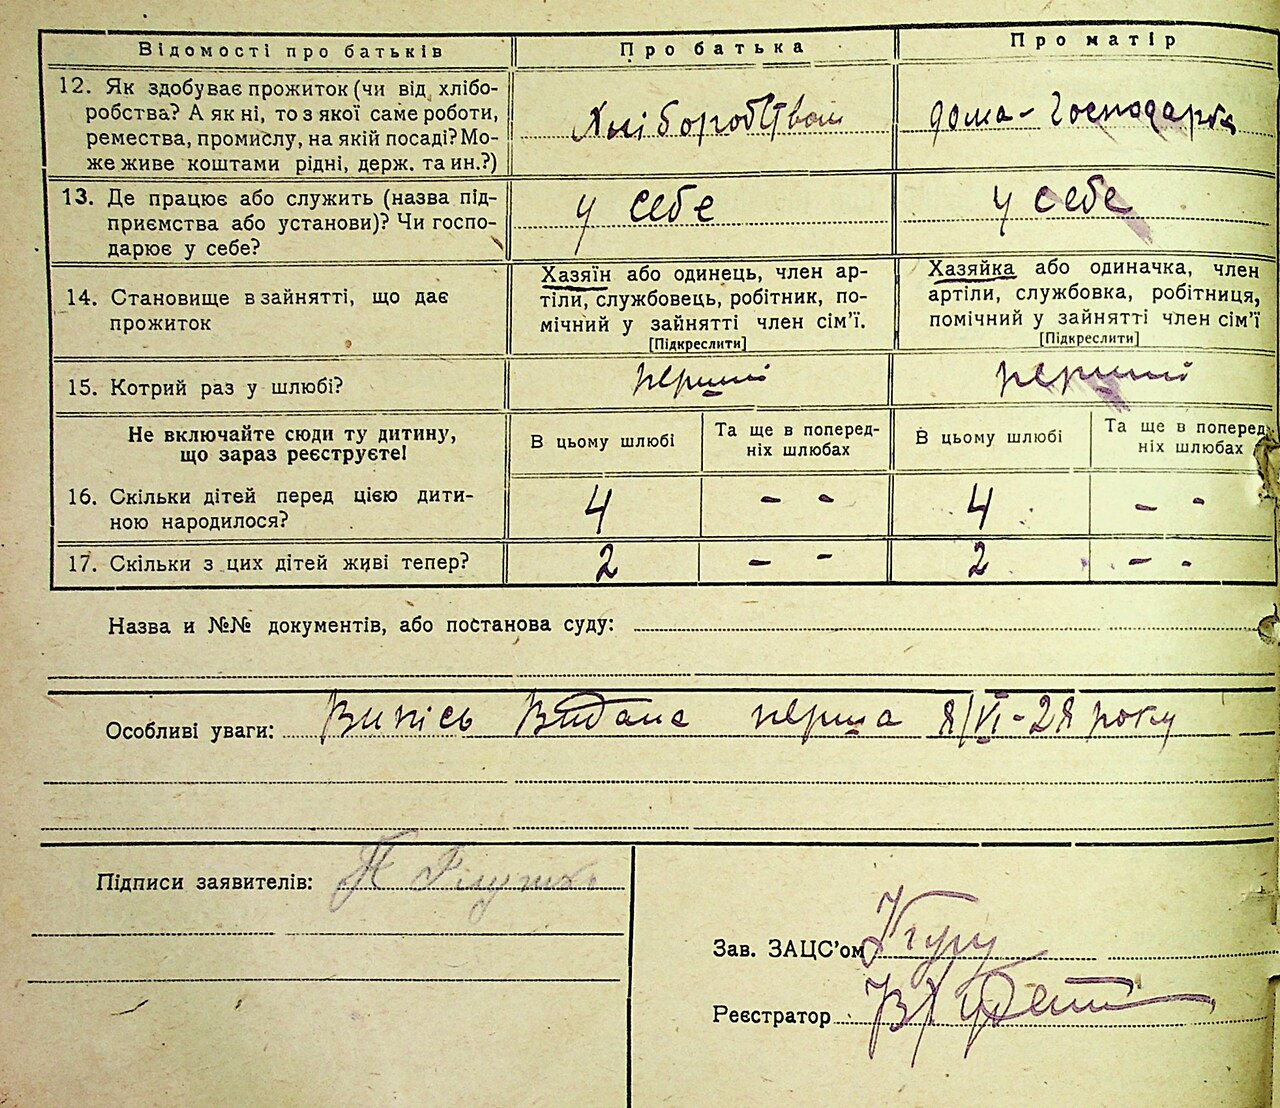 Відомості про батьків
Про батька
Про матір
12. Як здобуває прожиток (чи від хлібо-
робства? А як ні, то з якої саме роботи,
ремества, промислу, на якій посаді? Мо-
же живе коштами рідні, держ. та ин.?)
Хліборобством
дома-господарка
13. Де працює або служить (назва під-
приємства або установи)? Чи госпо-
дарює у себе?
у себе
у себе
14. Становище в зайнятті, що дає
прожиток
Хазяїн або одинець, член ар-
тіли, службовець, робітник, по-
мічний у зайнятті член сім’ї.
[Підкреслити]
Хазяйка або одиначка, член
артіли, службовка, робітниця,
помічний у зайнятті член сім’ї
[Підкреслити]
15. Котрий раз у шлюбі?
перший
перший
Не включайте сюди ту дитину,
що зараз реєструєте!
В цьому шлюбі
Та ще в поперед-
ніх шлюбах
В цьому шлюбі
Та ще в поперед-
ніх шлюбах
16. Скільки дітей перед цією дити-
ною народилося?
4
- -
4
- -
17. Скільки з цих дітей живі тепер?
2
- -
2
- -
Назва и №№ документів, або постанова суду:
Особливі уваги: Випісь видана перша 8/VI-28 року
Підписи заявителів:
Зав. ЗАЦС’ом
Реєстратор